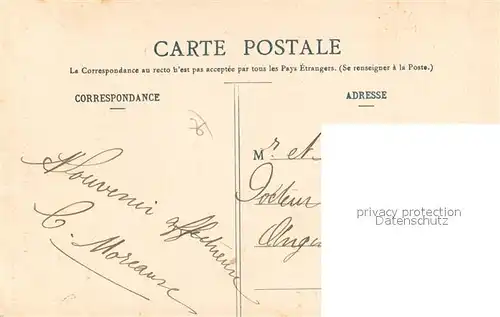 CARTE POSTALE
La Correspondance au recto n'est pas acceptée par tous les Pays Étrangers. (Se renseigner à la Poste.)
CORRESPONDANCE
ADRESSE
Souvenir affectueux
C. Moreau
M
Docteur
Ange
privacy protection
Datenschutz